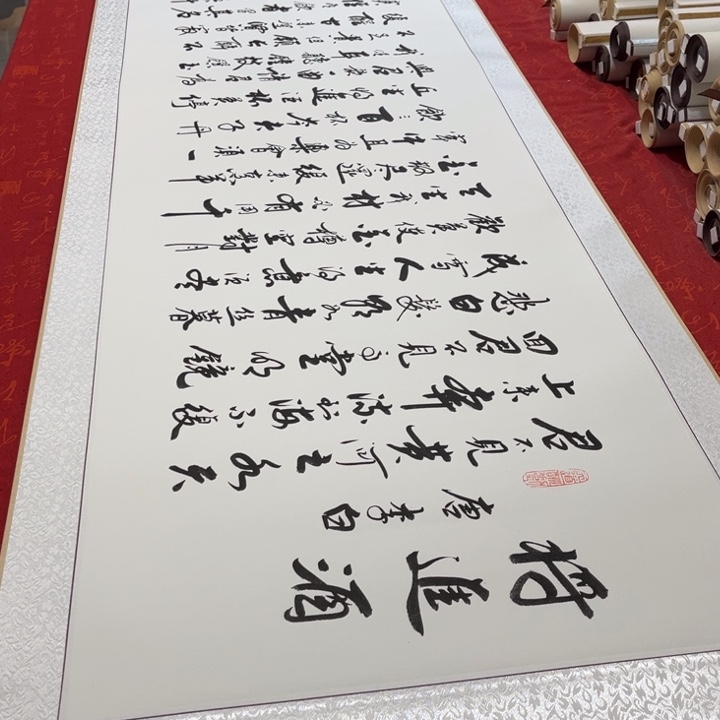 将進酒
唐李白
君不見黄河之水天
上来奔流到海不復
回君不見高堂明鏡
悲白髮朝如青丝暮
成雪人生得意須盡
歡莫使金樽空對月
天生我材必有用千
金散盡還復来烹羊
宰牛且為樂會須一
飲三百杯岑夫子丹
丘生將進酒杯莫停
與君歌一曲請君為
我傾耳聽鐘鼓饌玉
不足貴但願長醉不
復醒古来聖賢皆寂